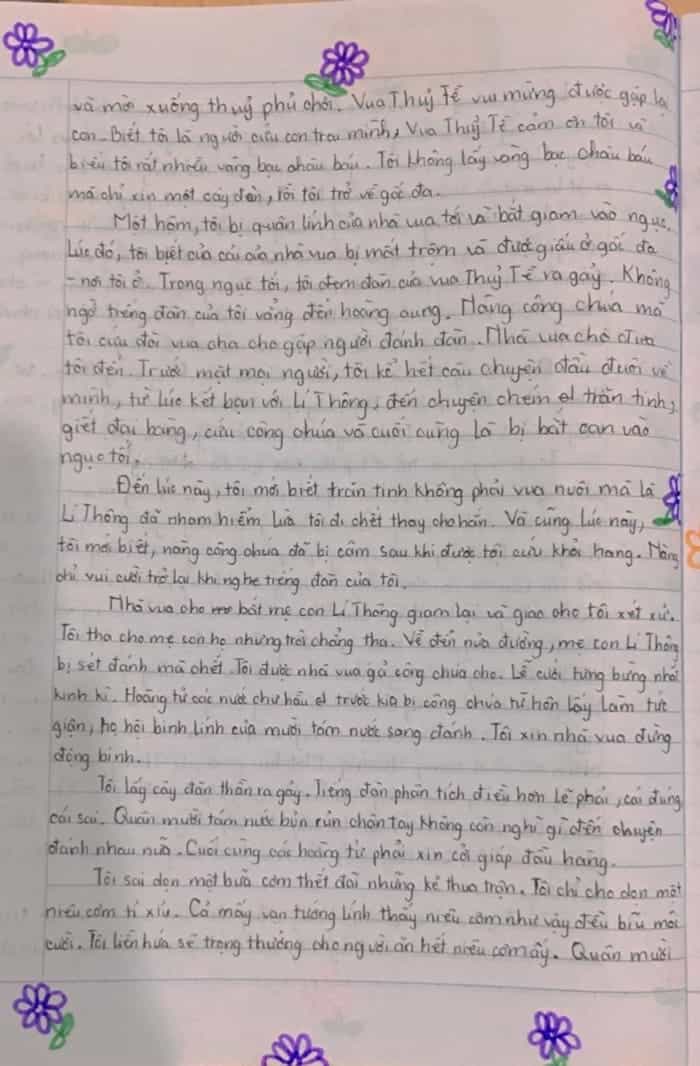 và mời xuống thuỷ phủ chơi. Vua Thuỷ Tề vui mừng được gặp lại
con. Biết tôi là người cứu con trai mình, Vua Thuỷ Tề cảm ơn tôi và
biếu tôi rất nhiều vàng bạc châu báu. Tôi không lấy vàng bạc châu báu
mà chỉ xin một cây đàn, rồi tôi trở về gốc đa.
Một hôm, tôi bị quân lính của nhà vua tới và bắt giam vào ngục.
Lúc đó, tôi biết của cải của nhà vua bị mất trộm và được giấu ở gốc đa
- nơi tôi ở. Trong ngục tối, tôi đem đàn của vua Thuỷ Tề ra gảy. Không
ngờ tiếng đàn của tôi vẳng đến hoàng cung. Nàng công chúa mà
tôi cứu đòi vua cha cho gặp người đánh đàn. Nhà vua cho đưa
tôi đến. Trước mặt mọi người, tôi kể hết câu chuyện đầu đuôi về
mình, từ lúc kết bạn với Lí Thông, đến chuyện chém trăn tinh,
giết đại bàng, cứu công chúa và cuối cùng là bị bắt oan vào
ngục tối.
Đến lúc này, tôi mới biết trăn tinh không phải vua nuôi mà là
Lí Thông đã nham hiểm lừa tôi đi chết thay cho hắn. Và cũng lúc này,
tôi mới biết, nàng công chúa đã bị câm sau khi được tôi cứu khỏi hang. Nàng
chỉ vui cười trở lại khi nghe tiếng đàn của tôi.
Nhà vua cho bắt mẹ con Lí Thông giam lại và giao cho tôi xét xử.
Tôi tha cho mẹ con họ nhưng trời chẳng tha. Về đến nửa đường, mẹ con Lí Thông
bị sét đánh mà chết. Tôi được nhà vua gả công chúa cho. Lễ cưới tưng bừng nhất
kinh kì. Hoàng tử các nước chư hầu trước kia bị công chúa từ hôn lấy làm tức
giận, họ hội binh lính của mười tám nước sang đánh. Tôi xin nhà vua đừng
động binh.
Tôi lấy cây đàn thần ra gảy. Tiếng đàn phân tích điều hơn lẽ phải, cái đúng
cái sai. Quân mười tám nước bủn rủn chân tay không còn nghĩ gì đến chuyện
đánh nhau nữa. Cuối cùng các hoàng tử phải xin cởi giáp đầu hàng.
Tôi sai dọn một bữa cơm thết đãi những kẻ thua trận. Tôi chỉ cho dọn một
niêu cơm tí xíu. Cả mấy vạn tướng lĩnh thấy niêu cơm như vậy đều bĩu môi
cười. Tôi liền hứa sẽ trọng thưởng cho người ăn hết niêu cơm ấy. Quân mười